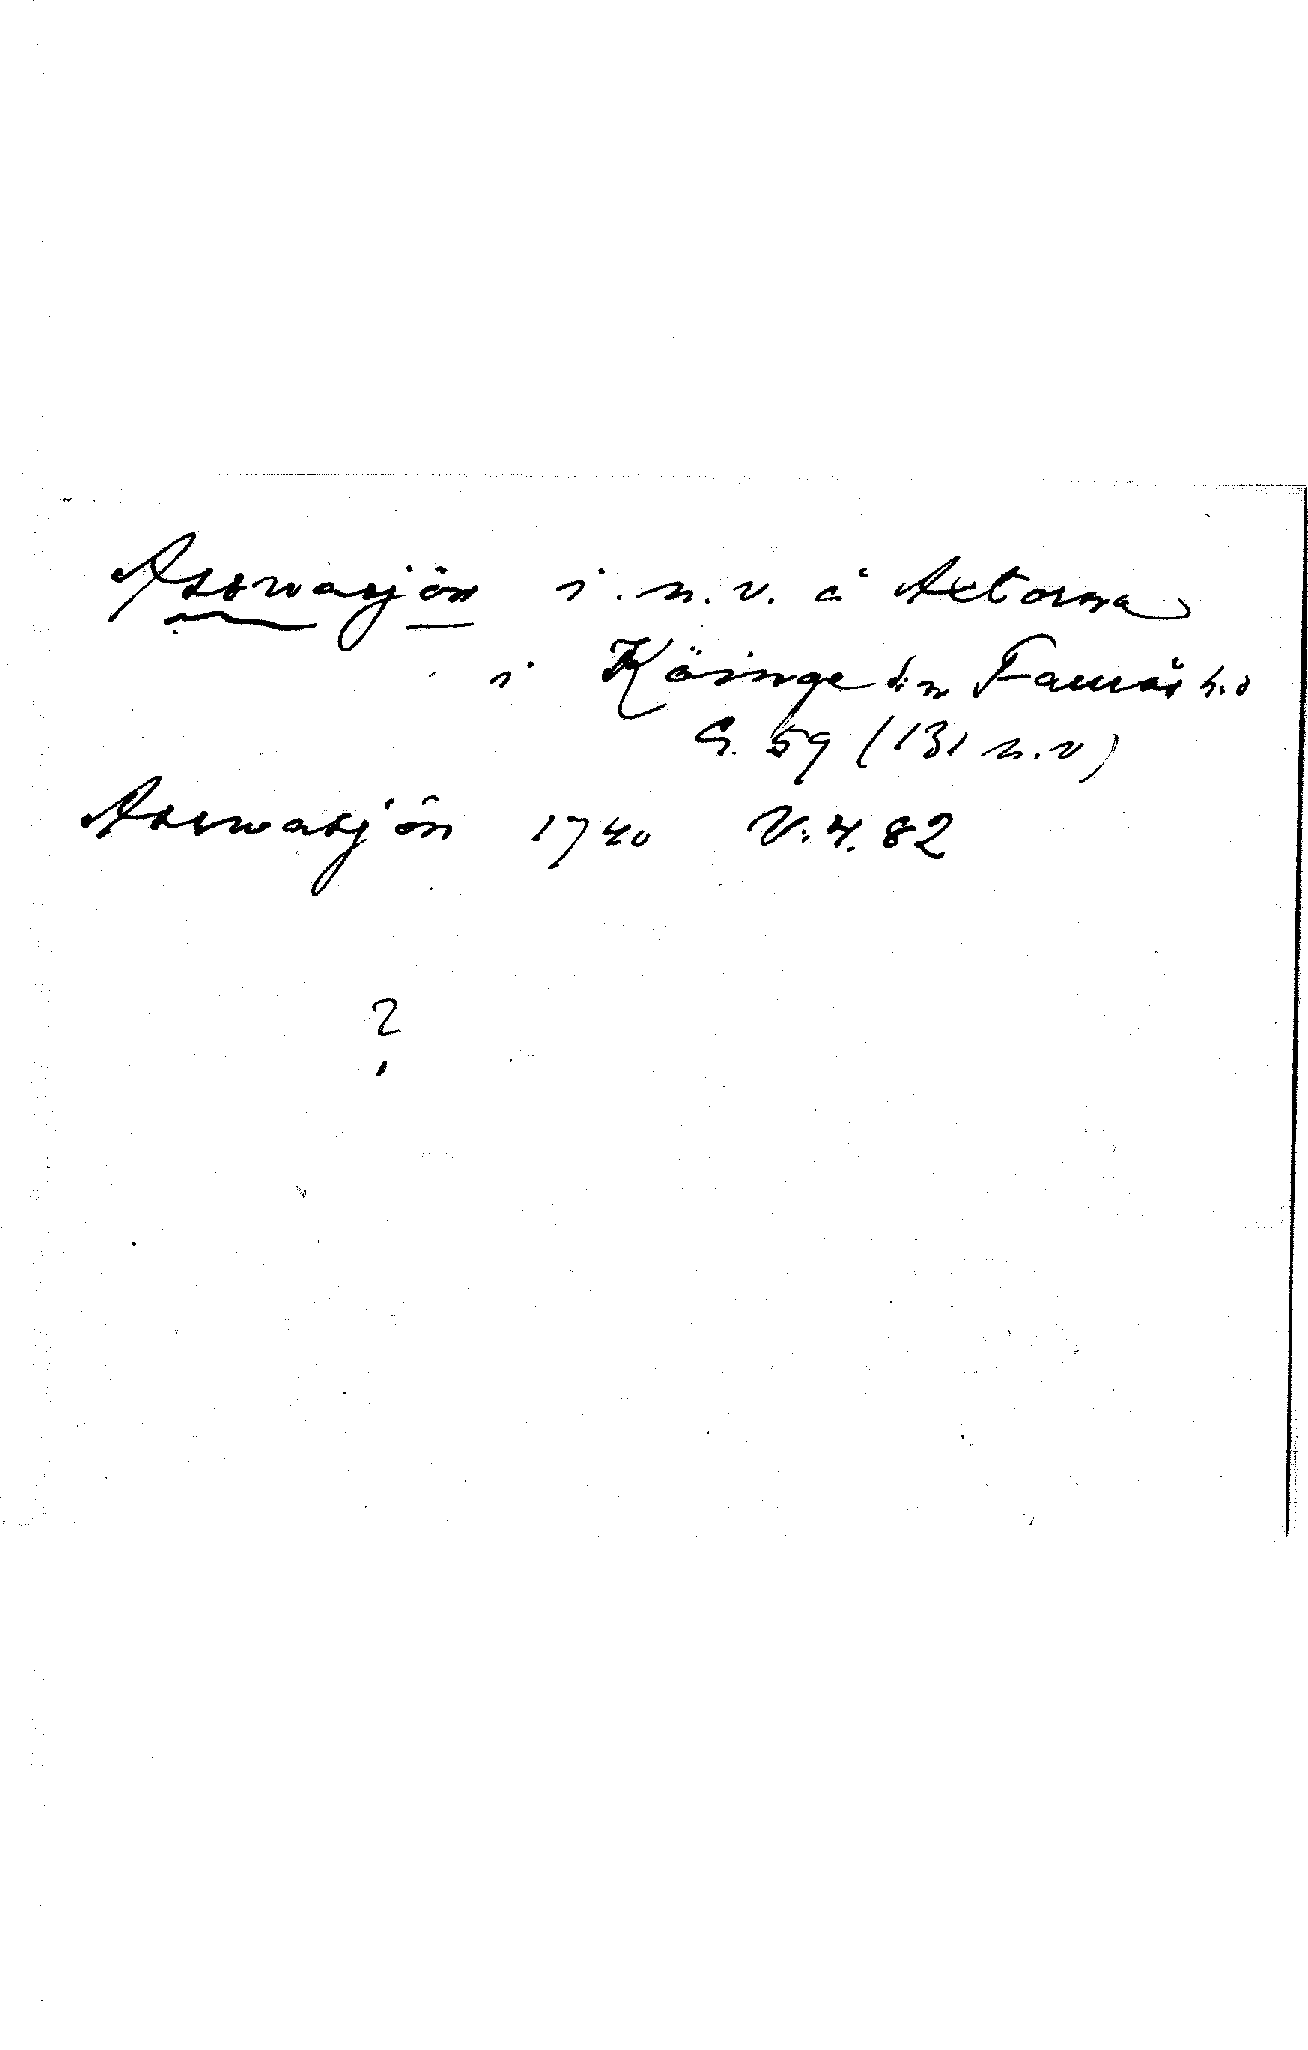 Asswasjön i. n. v. å Axtorna
i Köinge sn Faurås h.d
G. 59 (131 n.v)
Asswasjön 1740 V. 4. 82
?